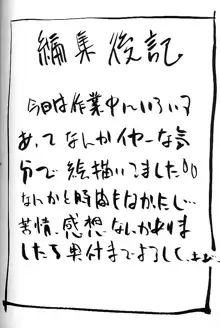 編集後記
今回は作業中にいろいろ
あってなんかイヤーな気
分で絵描いてました
なんかと時間もなかったし…
苦情、感想、なんかありま
したら奥付までよろしく、